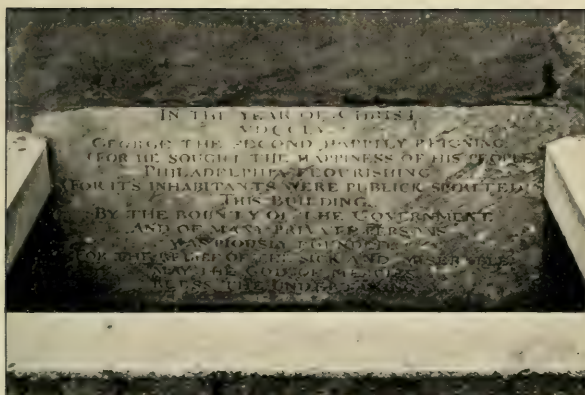 IN THE YEAR OF CHRIST
MDCCLV
GEORGE THE SECOND HAPPILY REIGNING
(FOR HE SOUGHT THE HAPPINESS OF HIS PEOPLE)
PHILADELPHIA FLOURISHING
(FOR ITS INHABITANTS WERE PUBLICK SPIRITED)
THIS BUILDING
BY THE BOUNTY OF THE GOVERNMENT
AND OF MANY PRIVATE PERSONS
WAS PIOUSLY FOUNDED
FOR THE RELIEF OF THE SICK AND MISERABLE
MAY THE GOD OF MERCIES
BLESS THE UNDERTAKING